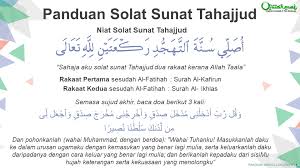 Panduan Solat Sunat Tahajjud
Niat Solat Sunat Tahajjud
أُصَلِّي سُنَّةَ التَّهَجُّدِ رَكْعَتَيْنِ لِلَّهِ تَعَالَى
"Sahaja aku solat sunat Tahajjud dua rakaat kerana Allah Taala"
Rakaat Pertama sesudah Al-Fatihah : Surah Al-Kafirun
Rakaat Kedua sesudah Al-Fatihah : Surah Al- Ikhlas
Semasa sujud akhir, baca doa berikut 3 kali:
وَقُل رَّبِّ أَدْخِلْنِي مُدْخَلَ صِدْقٍ وَأَخْرِجْنِي مُخْرَجَ صِدْقٍ وَاجْعَل لِّي
مِن لَّدُنكَ سُلْطَانًا نَّصِيرًا
Dan pohonkanlah (wahai Muhammad, dengan berdoa): "Wahai Tuhanku! Masukkanlah daku
ke dalam urusan ugamaku dengan kemasukan yang benar lagi mulia, serta keluarkanlah daku
daripadanya dengan cara keluar yang benar lagi mulia; dan berikanlah kepadaku dari sisiMu
hujah keterangan serta kekuasaan yang menolongku".